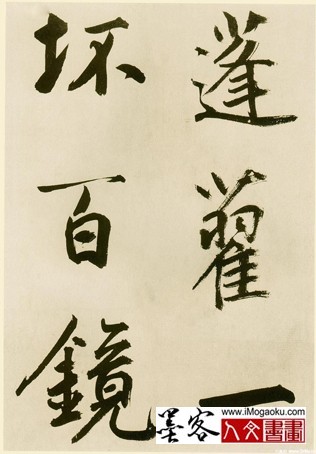 蓬藋一
坏百鏡
墨客
www.iMogaoku.com
人文書畫